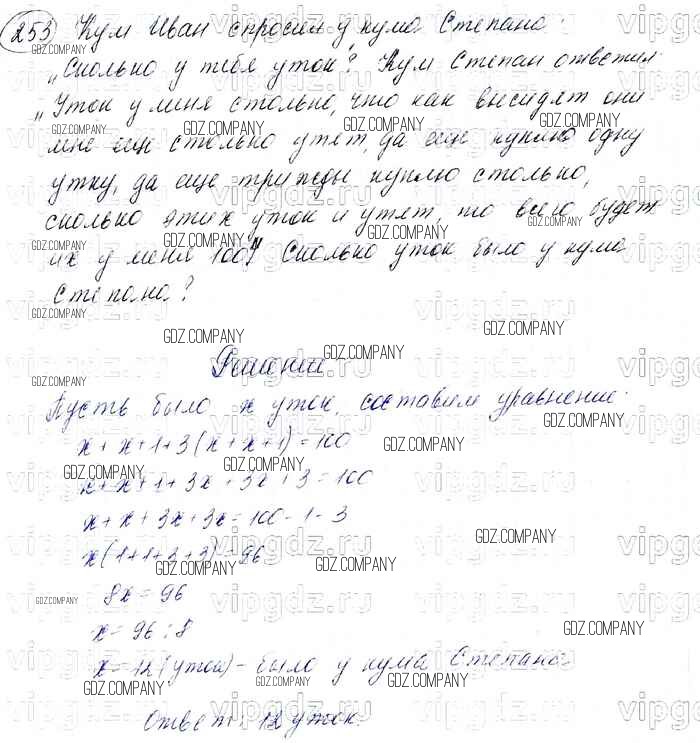 253 Кум Иван спросил у кума Степана:
„Сколько у тебя уток? Кум Степан ответил
„Уток у меня столько, что как высидят они
мне ещё столько утят, да ещё куплю одну
утку, да еще трижды куплю столько,
сколько этих уток и утят, то всего будет
их у меня 100". Сколько уток было у кума
Степана?
Решение
Пусть было x уток, составим уравнение:
x + x + 1 + 3(x + x + 1) = 100
x + x + 1 + 3x + 3x + 3 = 100
x + x + 3x + 3x = 100 - 1 - 3
x(1+1+3+3) = 96
8x = 96
x = 96 : 8
x = 12 (уток) - было у кума Степана
Ответ: 12 уток.
GDZ.COMPANY
vipgdz.ru